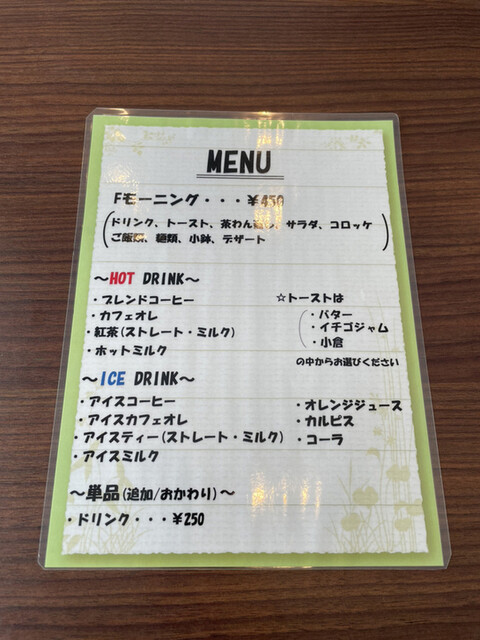 MENU
Fモーニング・・・¥450
(ドリンク、トースト、茶わん、サラダ、コロッケ
ご飯、麺類、小鉢、デザート)
～HOT DRINK～
・ブレンドコーヒー
・カフェオレ
・紅茶(ストレート・ミルク)
・ホットミルク
☆トーストは
・バター
・イチゴジャム
・小倉
の中からお選びください
～ICE DRINK～
・アイスコーヒー
・アイスカフェオレ
・アイスティー(ストレート・ミルク)
・アイスミルク
・オレンジジュース
・カルピス
・コーラ
～単品(追加/おかわり)～
・ドリンク・・・¥250